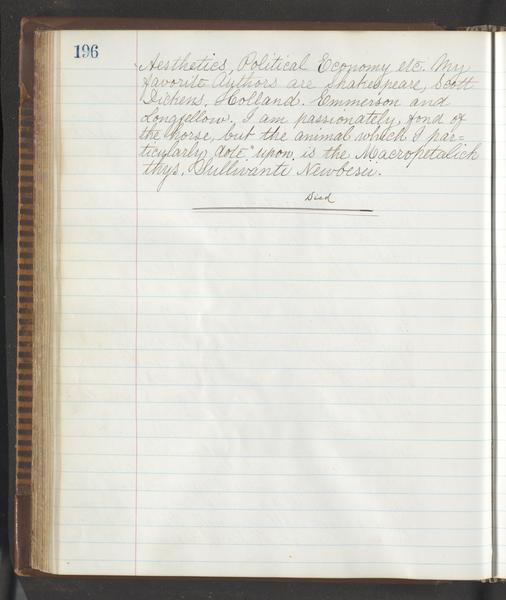 196
Aesthetics, Political Economy etc. My
favorite Authors are Shakespeare, Scott
Dickens, Holland. Emmerson and
Longfellow. I am passionately, fond of
the horse, but the animal which I par=
ticularly "dote" upon is the Macropetalick
thys, Sullivanti Newbesii.
Died